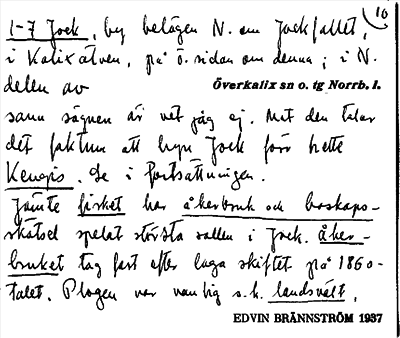 10
1-7 Jock, by belägen N. om Jockfallet,
i Kalixälven, på ö. sidan om denna; i N.
delen av Överkalix sn o. tg Norrb. l.
sann sägnen är vet jag ej. Mot den talar
det faktum att byn Jock förr hette
Kengis. Se i fortsättningen.
Jämte fisket har åkerbruk och boskaps-
skötsel spelat största rollen i Jock. Åker-
bruket tag fart efter laga skiftet på 1860-
talet. Plogen var vanlig s.k. landsvält.
EDVIN BRÄNNSTRÖM 1937